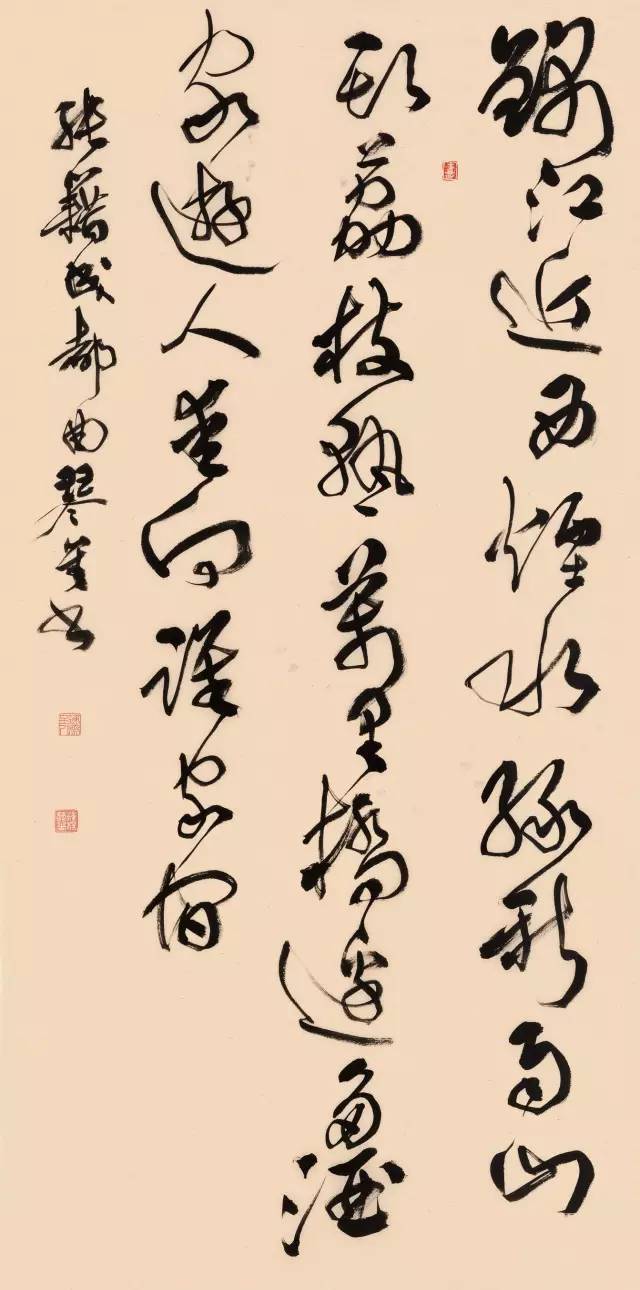 錦江近西煙水綠新雨山
頭荔枝熟萬里橋邊多酒
家遊人愛向誰家宿
張籍成都曲琴书